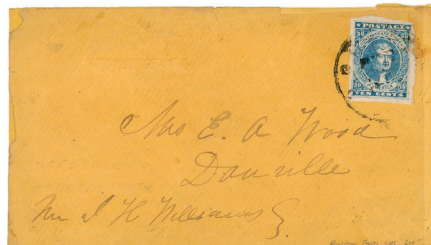 POSTAGE
TEN CENTS
Mrs E. A Wood
Danville
H Williams